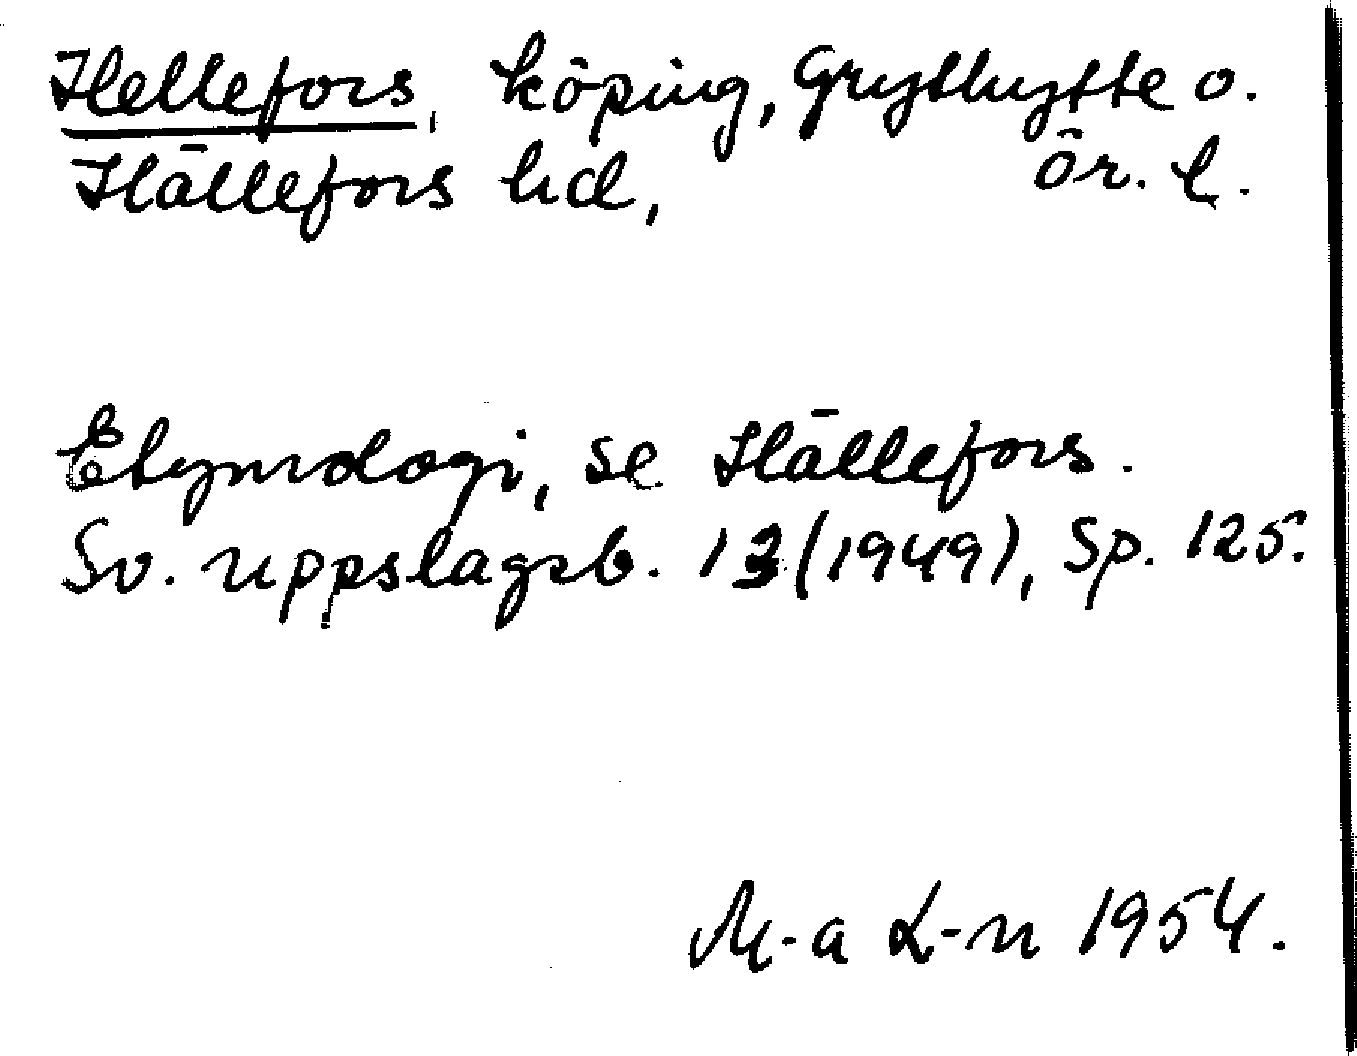 Hellefors, köping, Grythytte o.
Hällefors hd, Ör. l.
Etymologi, se Hällefors.
Sv. uppslagsb. 13 (1949), Sp. 125.
M-a L-n 1954.